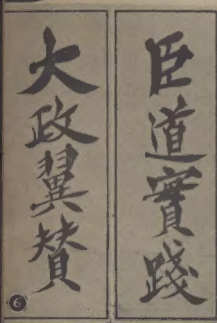 臣道實踐
大政翼賛
6